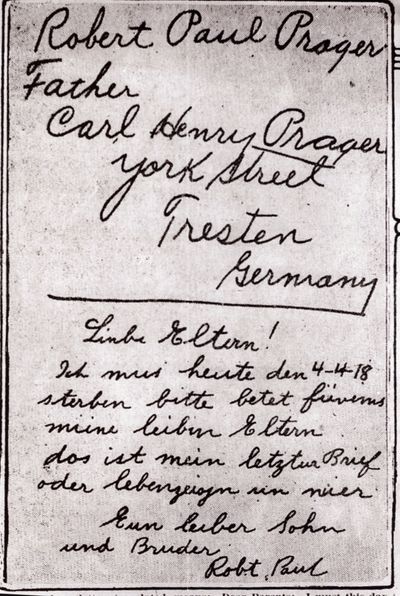 Robert Paul Prager
Father
Carl Henry Prager
York Street
Tresten
Germany
Liebe Eltern!
Ich mus heute den 4-4-18
sterben bitte betet
meine leiben Eltern
dos ist mein letzter Brief
oder
Eur leiber Sohn
und Bruder
Robt. Paul